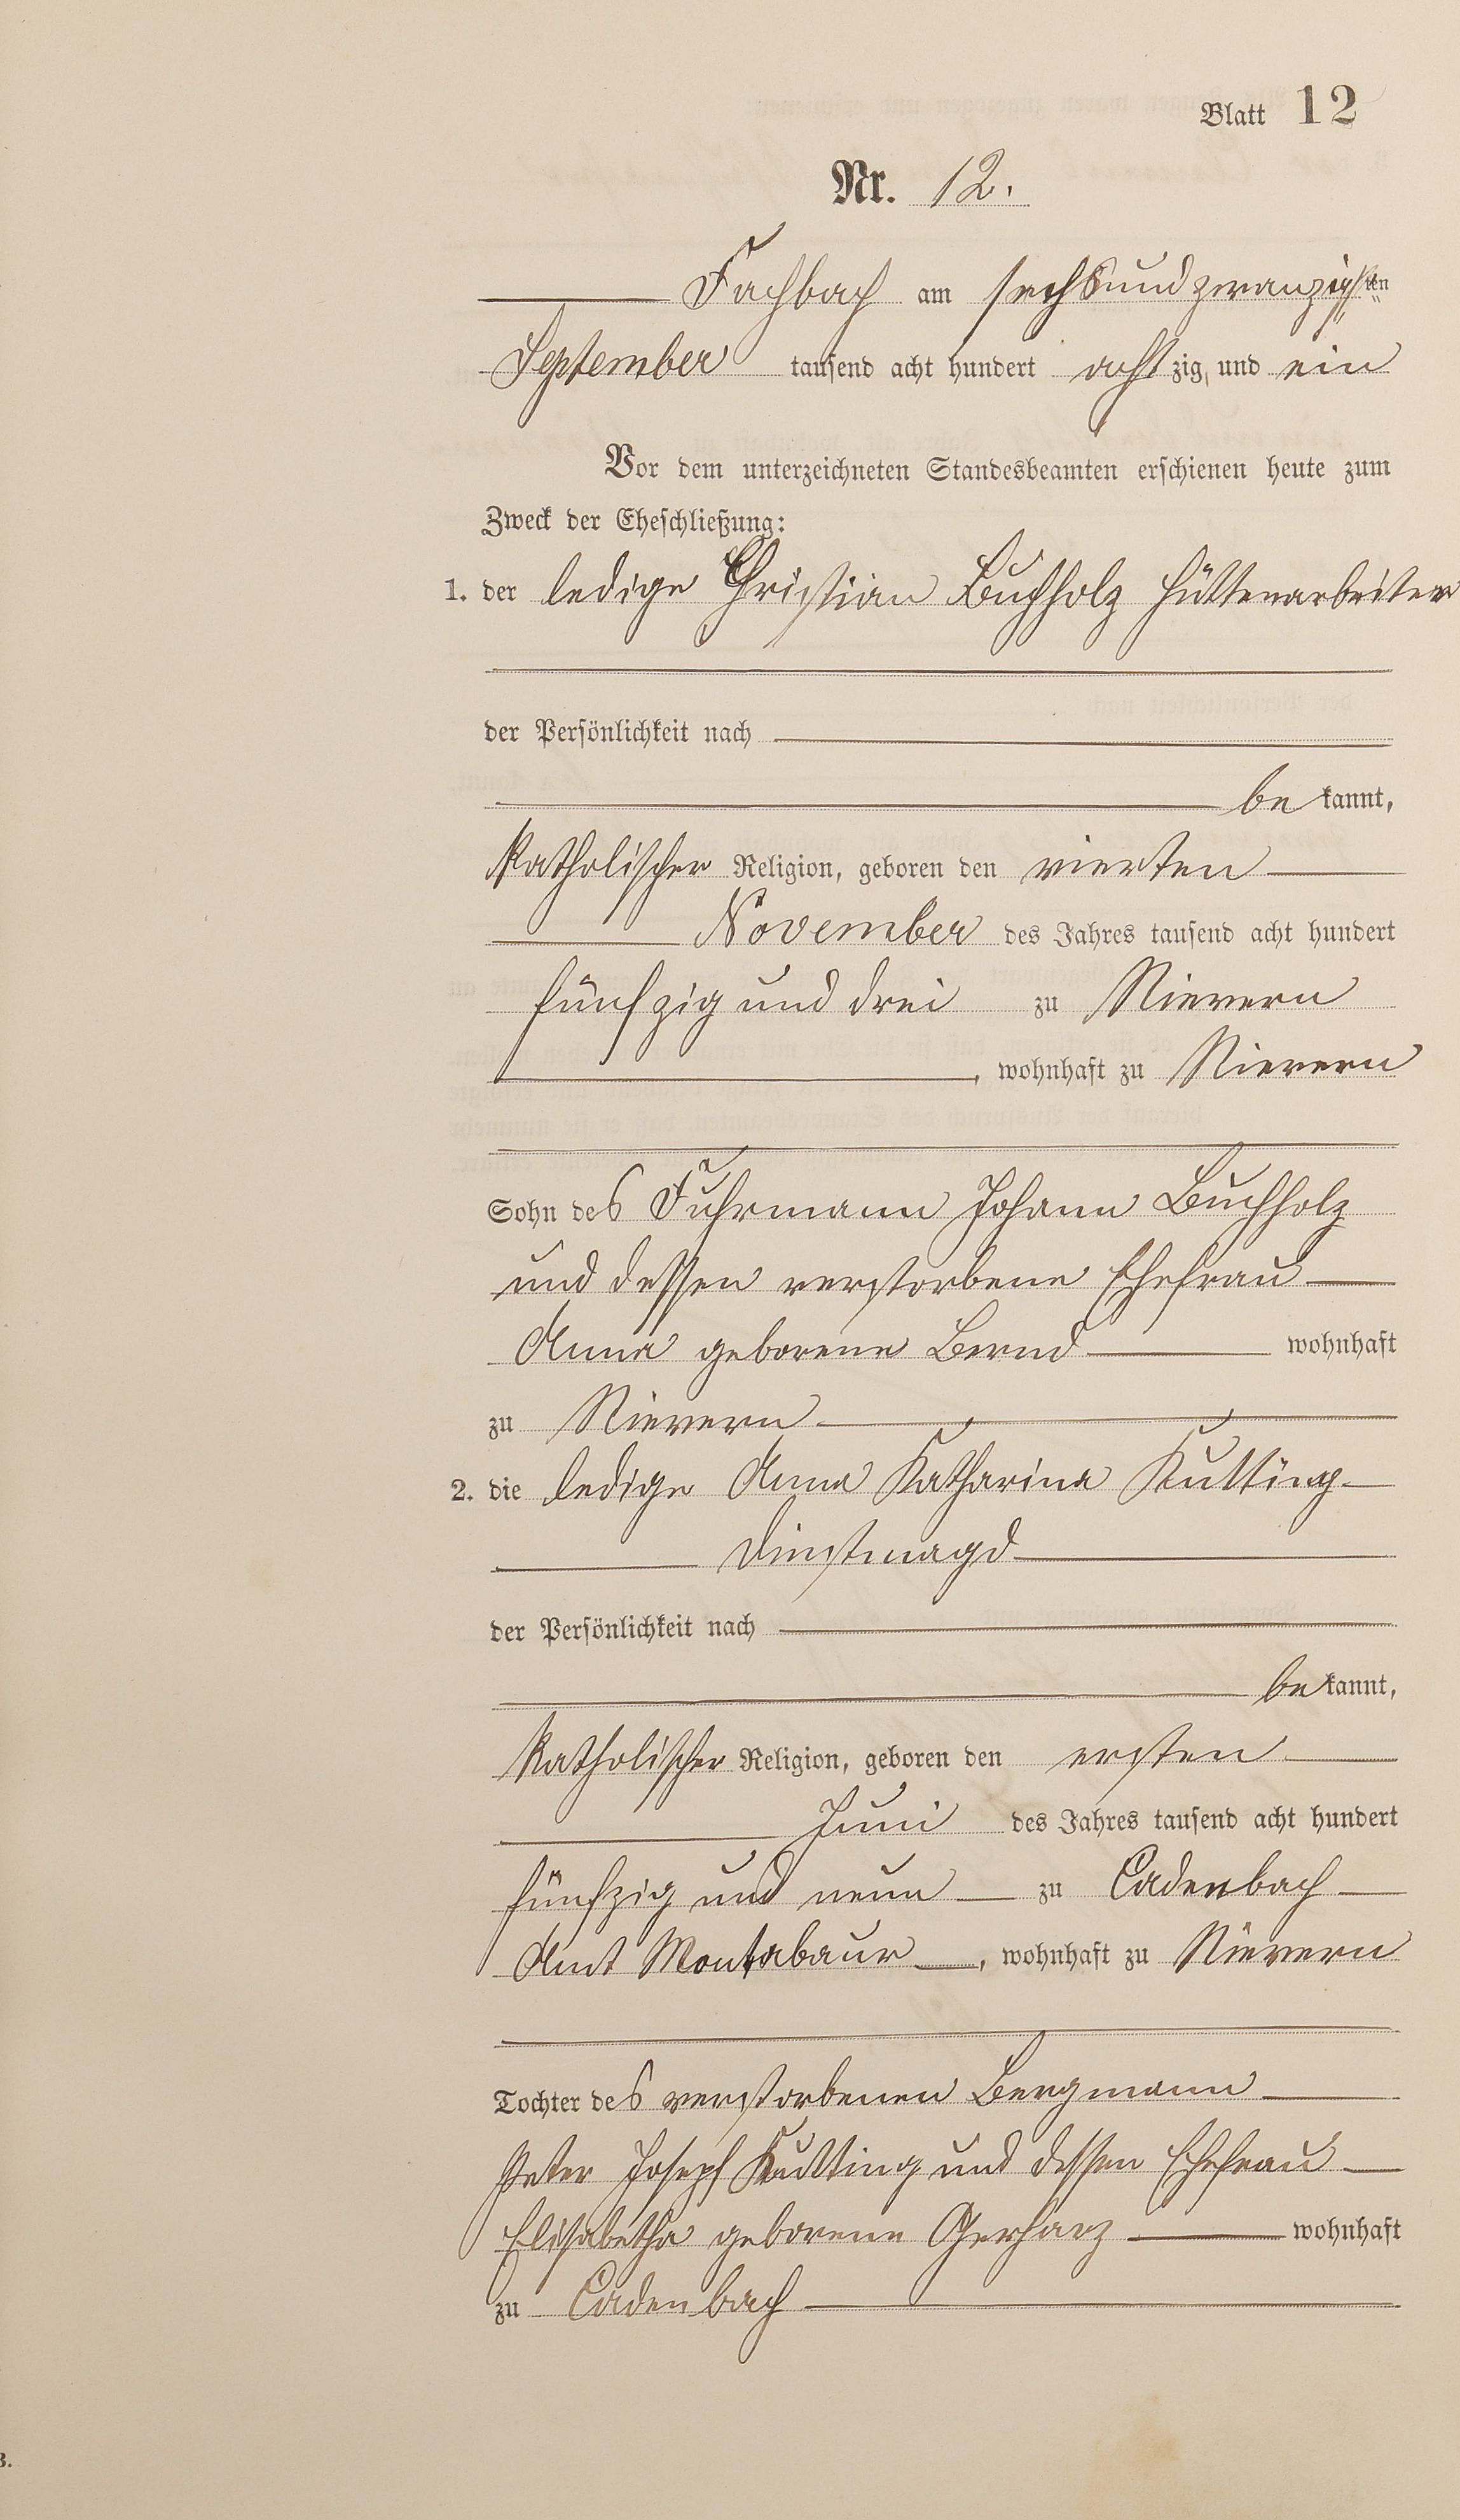 Blatt 12
Nr. 12.
Fachbach am sechsundzwanzigsten
September tausend acht hundert achtzig, und ein
Vor dem unterzeichneten Standesbeamten erschienen heute zum
Zweck der Eheschließung:
1. der ledige Christian Buchholz Hüttenarbeiter
der Persönlichkeit nach
bekannt,
Katholischer Religion, geboren den vierten
November des Jahres tausend acht hundert
fünfzig und drei zu Nievern
, wohnhaft zu Nievern
Sohn des Fuhrmann Johann Buchholz
und dessen verstorbene Ehefrau
Anna geborene Bernd wohnhaft
zu Nievern
2. die ledige Anna Katharina Kutting
Dinstmagd
der Persönlichkeit nach
bekannt,
Katholischer Religion, geboren den ersten
Juni des Jahres tausend acht hundert
fünfzig und neun zu Cadenbach
Amt Montabaur, wohnhaft zu Nievern
Tochter des verstorbenen Bergmann
Peter Joseph Kutting und dessen Ehefrau
Elisabetha geborene Gerharz wohnhaft
zu Cadenbach
3.